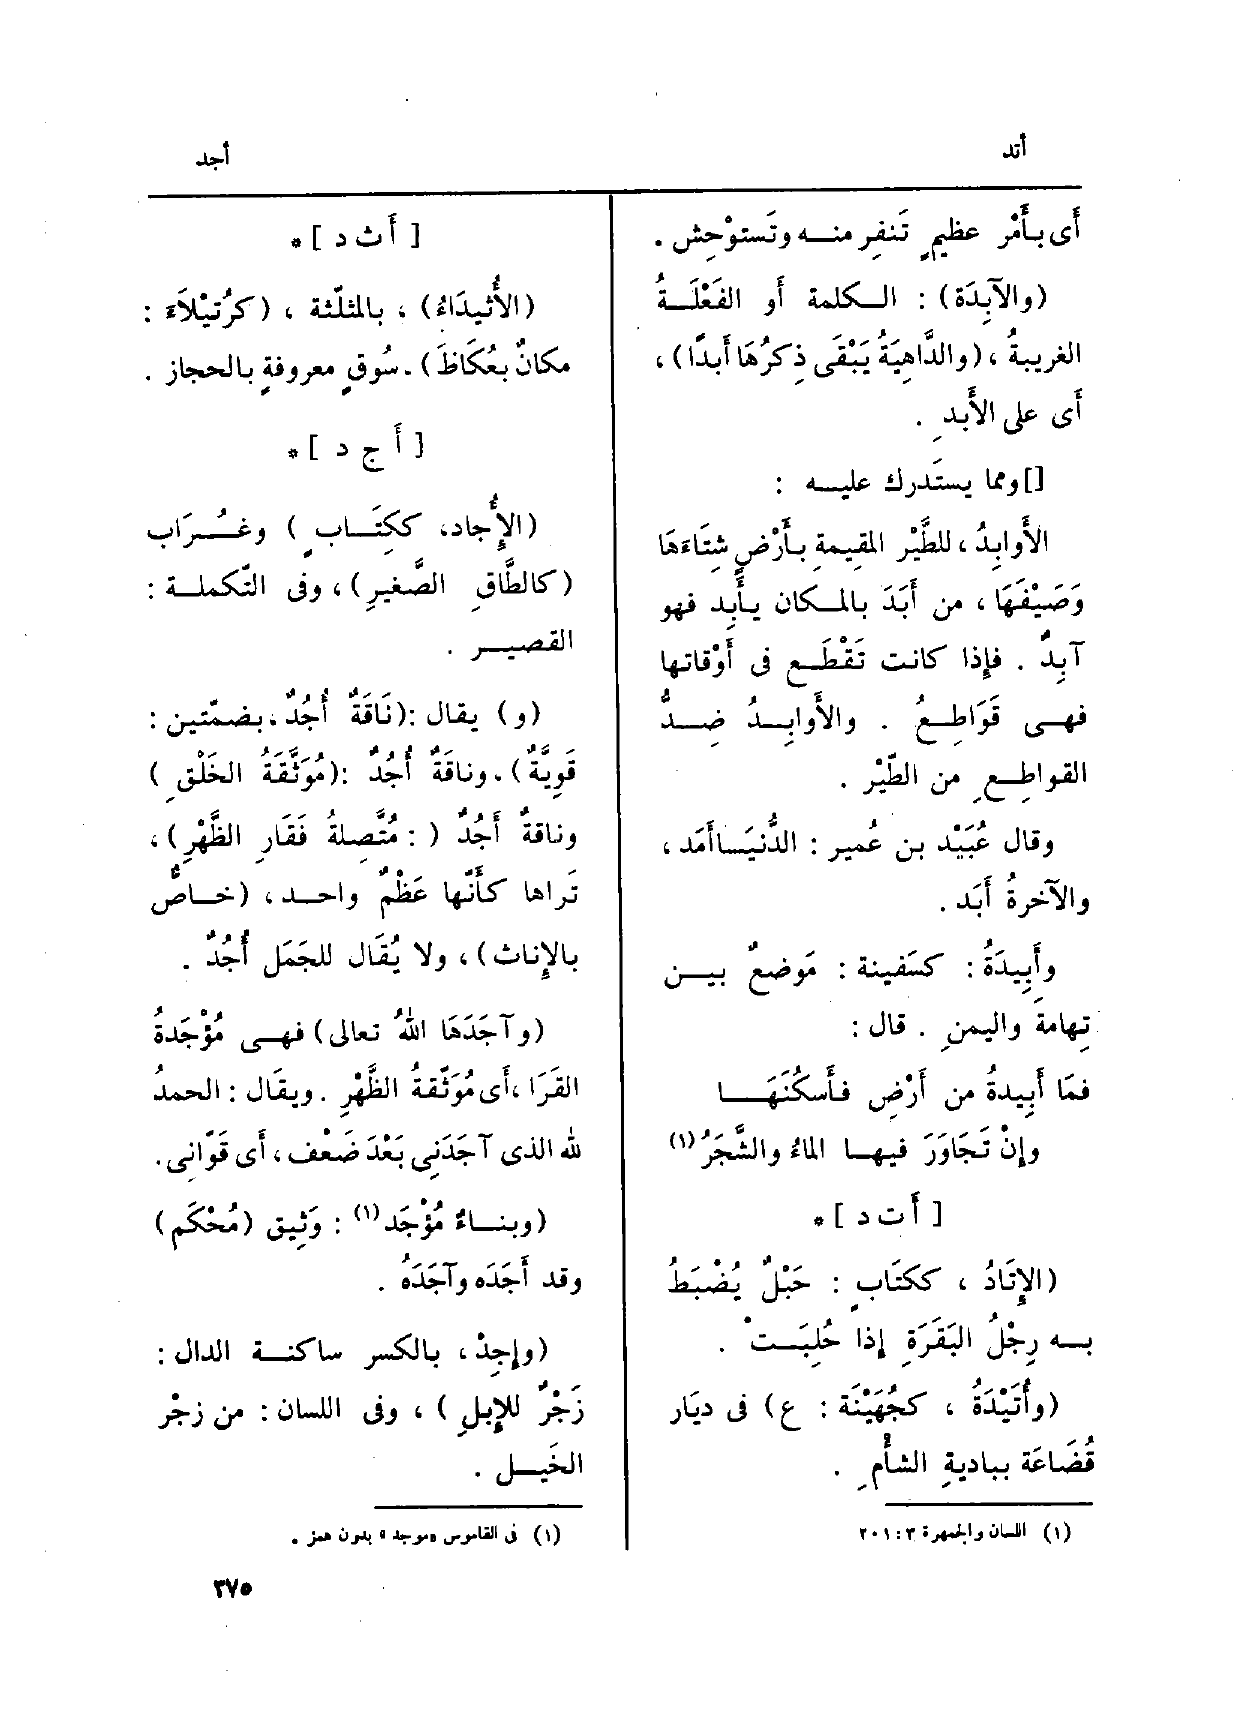 أتد
أجد
أَى بأَمْر عظيمٍ تَنفِر منـه وتَستوْحِش .
(والآبِدَة) : الـكلمة أو الفَعْلَــةُ
الغريبةُ ، (والدَّاهِيَةُ يَبْقَى ذِكرُهَا أَبدًا) ،
أَى على الأَبـدِ .
[]ومما يستَدرك عليــه :
الأَوابِدُ ، للطَّيْر المقيمةِ بـأَرْضٍ شِتَاءَهَا
وَصَيْفَهَا ، من أَبَدَ بالمـكان يـأْبِد فهو
آبِدٌ . فإِذا كانت تَقْطَـع فى أَوْقاتها
فهـى قَوَاطِـعُ . والأَوابِـدُ ضِـدُّ
القواطِـعِ من الطَّيْر .
وقال عُبَيْد بن عُمير : الدُّنيَـاأَمَد ،
والآخرةُ أَبَد .
وأَبِيدَةُ : كسَفينة : مَوضعٌ بيــن
تِهامَةَ واليمنِ . قال :
فمَا أَبِيدةُ من أَرْضٍ فـأَسكُنَهَـــا
وإِنْ تَجَاوَرَ فيهـا الماءُ والشَّجَرُ (١)
[ أَ ت د ] *
(الإِتَادُ ، ككتَابٍ : حَبْلٌ يُضْبَطُ
بــه رِجْلُ البَقَرَةِ إِذا حُلِبَـتْ .
(وأُتَيْدَةُ ، كجُهَيْنَة : ع) فى ديَار
قُضَاعَة بباديةِ الشأْمِ .
(١) اللسان والجمهرة ٣ : ٢٠١
[ أَ ث د ] *
(الأُثَيدَاءُ) ، بالمثلّثة ، (كرُتَيْلَاءَ :
مكانٌ بعُكَاظَ) . سُوقٍ معروفةٍ بالحجاز .
[ أَ ج د ] *
(الإُِجاد، ككِتَــابٍ ) وغُــرَاب
(كالطَّاقِ الصَّغيرِ) ، وفى التّكملــة :
القصيــر .
(و) يقال :(نَاقَةٌ أُجُدٌ ، بضمّتين :
قَوِيَّةٌ) . وناقَةٌ أُجُدٌ :(مُوَثَّقَةُ الخَلْقِ )
وناقةٌ أُجُدٌ ( : مُتَّصِلةُ فَقَارِ الظَّهْرِ) ،
تَراها كأَنّها عَظْمٌ واحـد ، (خــاصٌّ
بالإِناث) ، ولا يُقَال للجَمَل أُجُدٌ .
(وآجَدَهَا اللهُ تعالى) فهـى مُؤْجَدةُ
القَرَا ،أَى مُوَثَّقةُ الظَّهْرِ . ويقَال : الحمدُ
لله الذى آجَدَنِى بَعْدَ ضَعْف ، أَى قَوّانِى .
(وبنــاءٌ مُؤْجَد(١) : وَثِيق (مُحْكَم)
وقد أَجَدَه وآجَدَهُ .
(وإِجِدْ ، بالكسر ساكنــة الدال :
زَجْرٌ للإِبلِ ) ، وفى اللسان : من زجْر
الخَيــل .
(١) فى القاموس «موجد» بدون همز .
٣٧٥